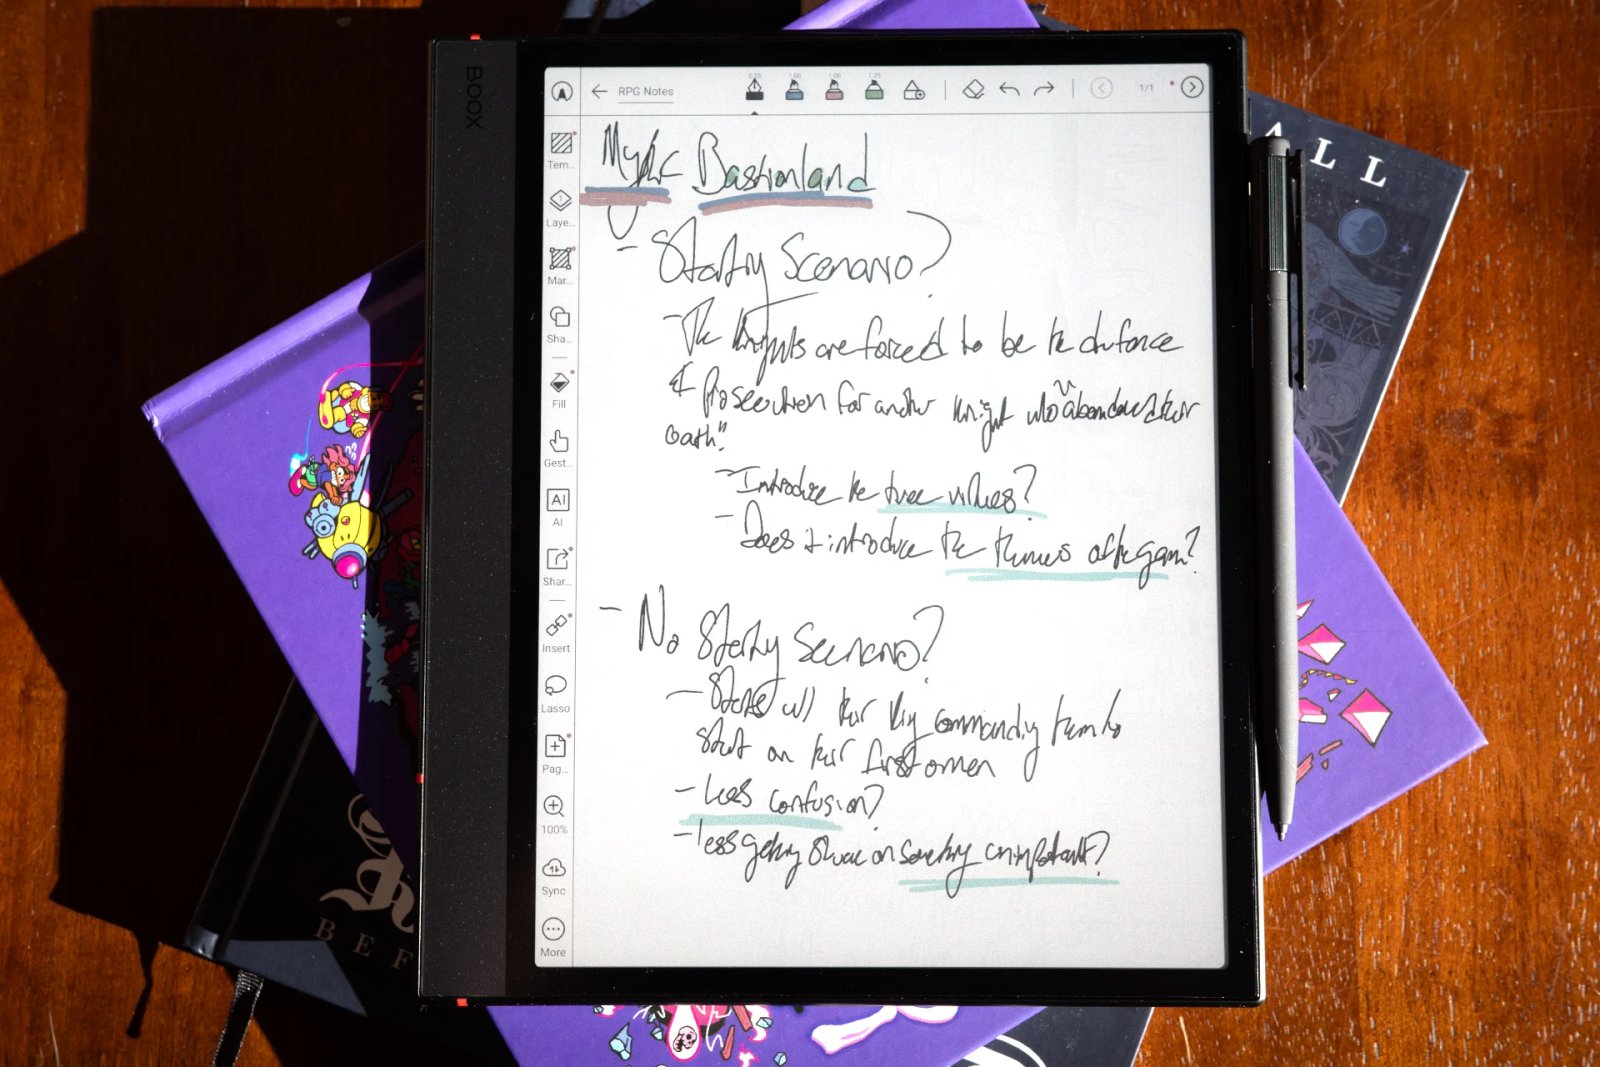 BOOX
RPG Notes
0.25 1.00 1.00 1.25
1/1
Tem...
Laye...
Mar...
Sha...
Fill
Gest...
AI
AI
Shar...
Insert
Lasso
Pag...
100%
Sync
More
Mythic Bastionland
- Starting Scenario?
- The Knights are forced to be the defence
& prosecution for another Knight who "abandoned their
oath"
- Introduce the three virtues?
- Does it introduce the themes of the game?
- No Starting Scenario?
- Starts w/ their King commanding them to
start on their first omen
- Less confusion?
- less getting stuck on something unimportant?
ALL
BEF